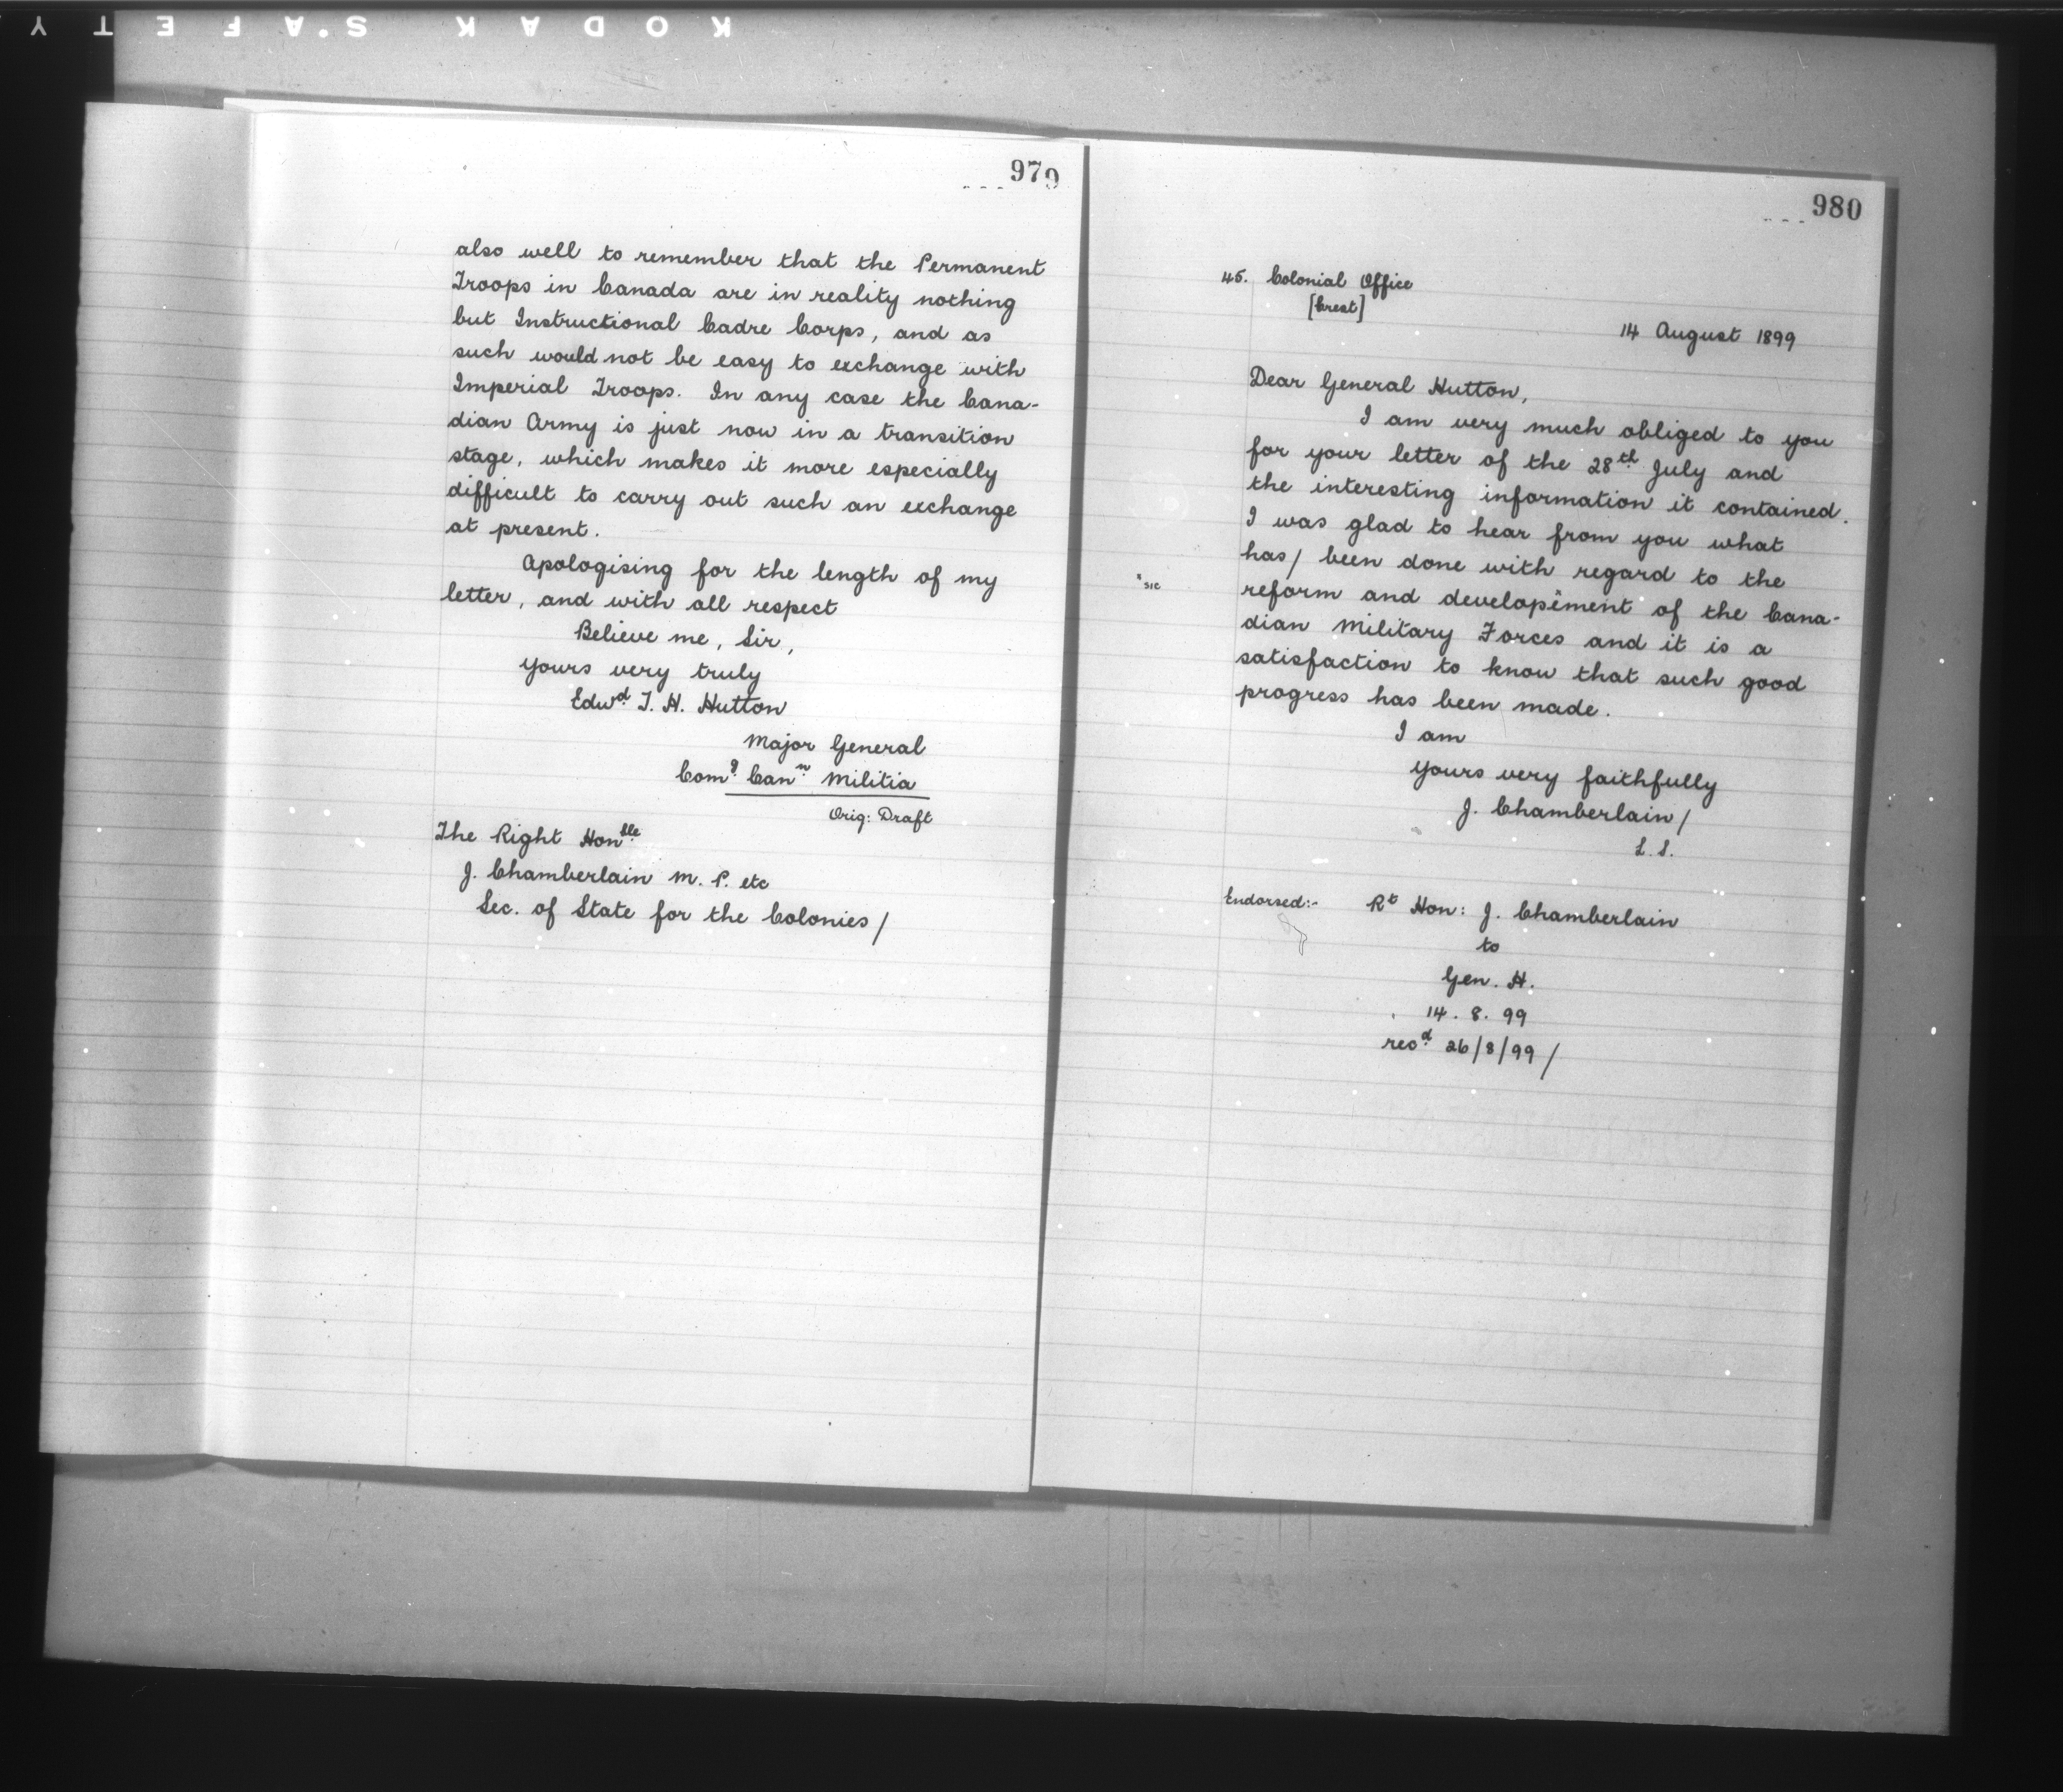 KODAK S.AFETY
979
also well to remember that the Permanent
Troops in Canada are in reality nothing
but Instructional Cadre Corps, and as
such would not be easy to exchange with
Imperial Troops. In any case the Cana-
dian Army is just now in a transition
stage, which makes it more especially
difficult to carry out such an exchange
at present.
Apologising for the length of my
letter, and with all respect
Believe me, Sir,
yours very truly
Edwd T. H. Hutton
Major General
Comg Cann Militia
Orig: Draft
The Right Honble
J. Chamberlain M. P. etc
Sec. of State for the Colonies/
980
45. Colonial Office
[Crest]
14 August 1899
Dear General Hutton,
I am very much obliged to you
for your letter of the 28th July and
the interesting information it contained.
I was glad to hear from you what
has/ been done with regard to the
x sic
reform and developxement of the Cana-
dian Military Forces and it is a
satisfaction to know that such good
progress has been made.
I am
yours very faithfully
J. Chamberlain/
L. S.
Endorsed:- Rt Hon: J. Chamberlain
to
Gen. H.
14. 8. 99
recd 26/8/99/